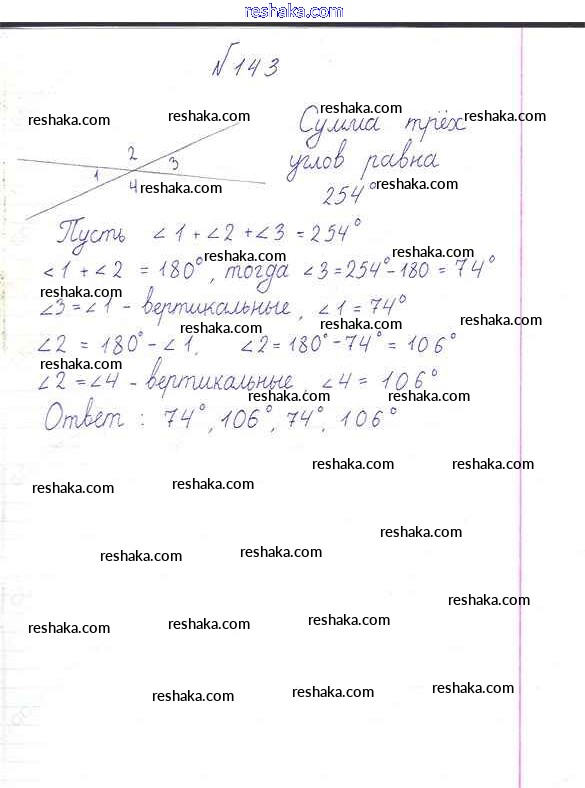 reshaka.com
№ 143
reshaka.com reshaka.com reshaka.com reshaka.com
Сумма трёх
углов равна
254°
2
1 3
4 reshaka.com reshaka.com
Пусть ∠1 + ∠2 + ∠3 = 254°
reshaka.com reshaka.com
∠1 + ∠2 = 180°, тогда ∠3 = 254° - 180 = 74°
reshaka.com reshaka.com
∠3 = ∠1 - вертикальные, ∠1 = 74°
reshaka.com reshaka.com reshaka.com
∠2 = 180° - ∠1, ∠2 = 180° - 74° = 106°
reshaka.com
∠2 = ∠4 - вертикальные, ∠4 = 106°
reshaka.com reshaka.com
Ответ : 74°, 106°, 74°, 106°
reshaka.com reshaka.com
reshaka.com reshaka.com
reshaka.com
reshaka.com reshaka.com
reshaka.com
reshaka.com reshaka.com reshaka.com
reshaka.com reshaka.com reshaka.com